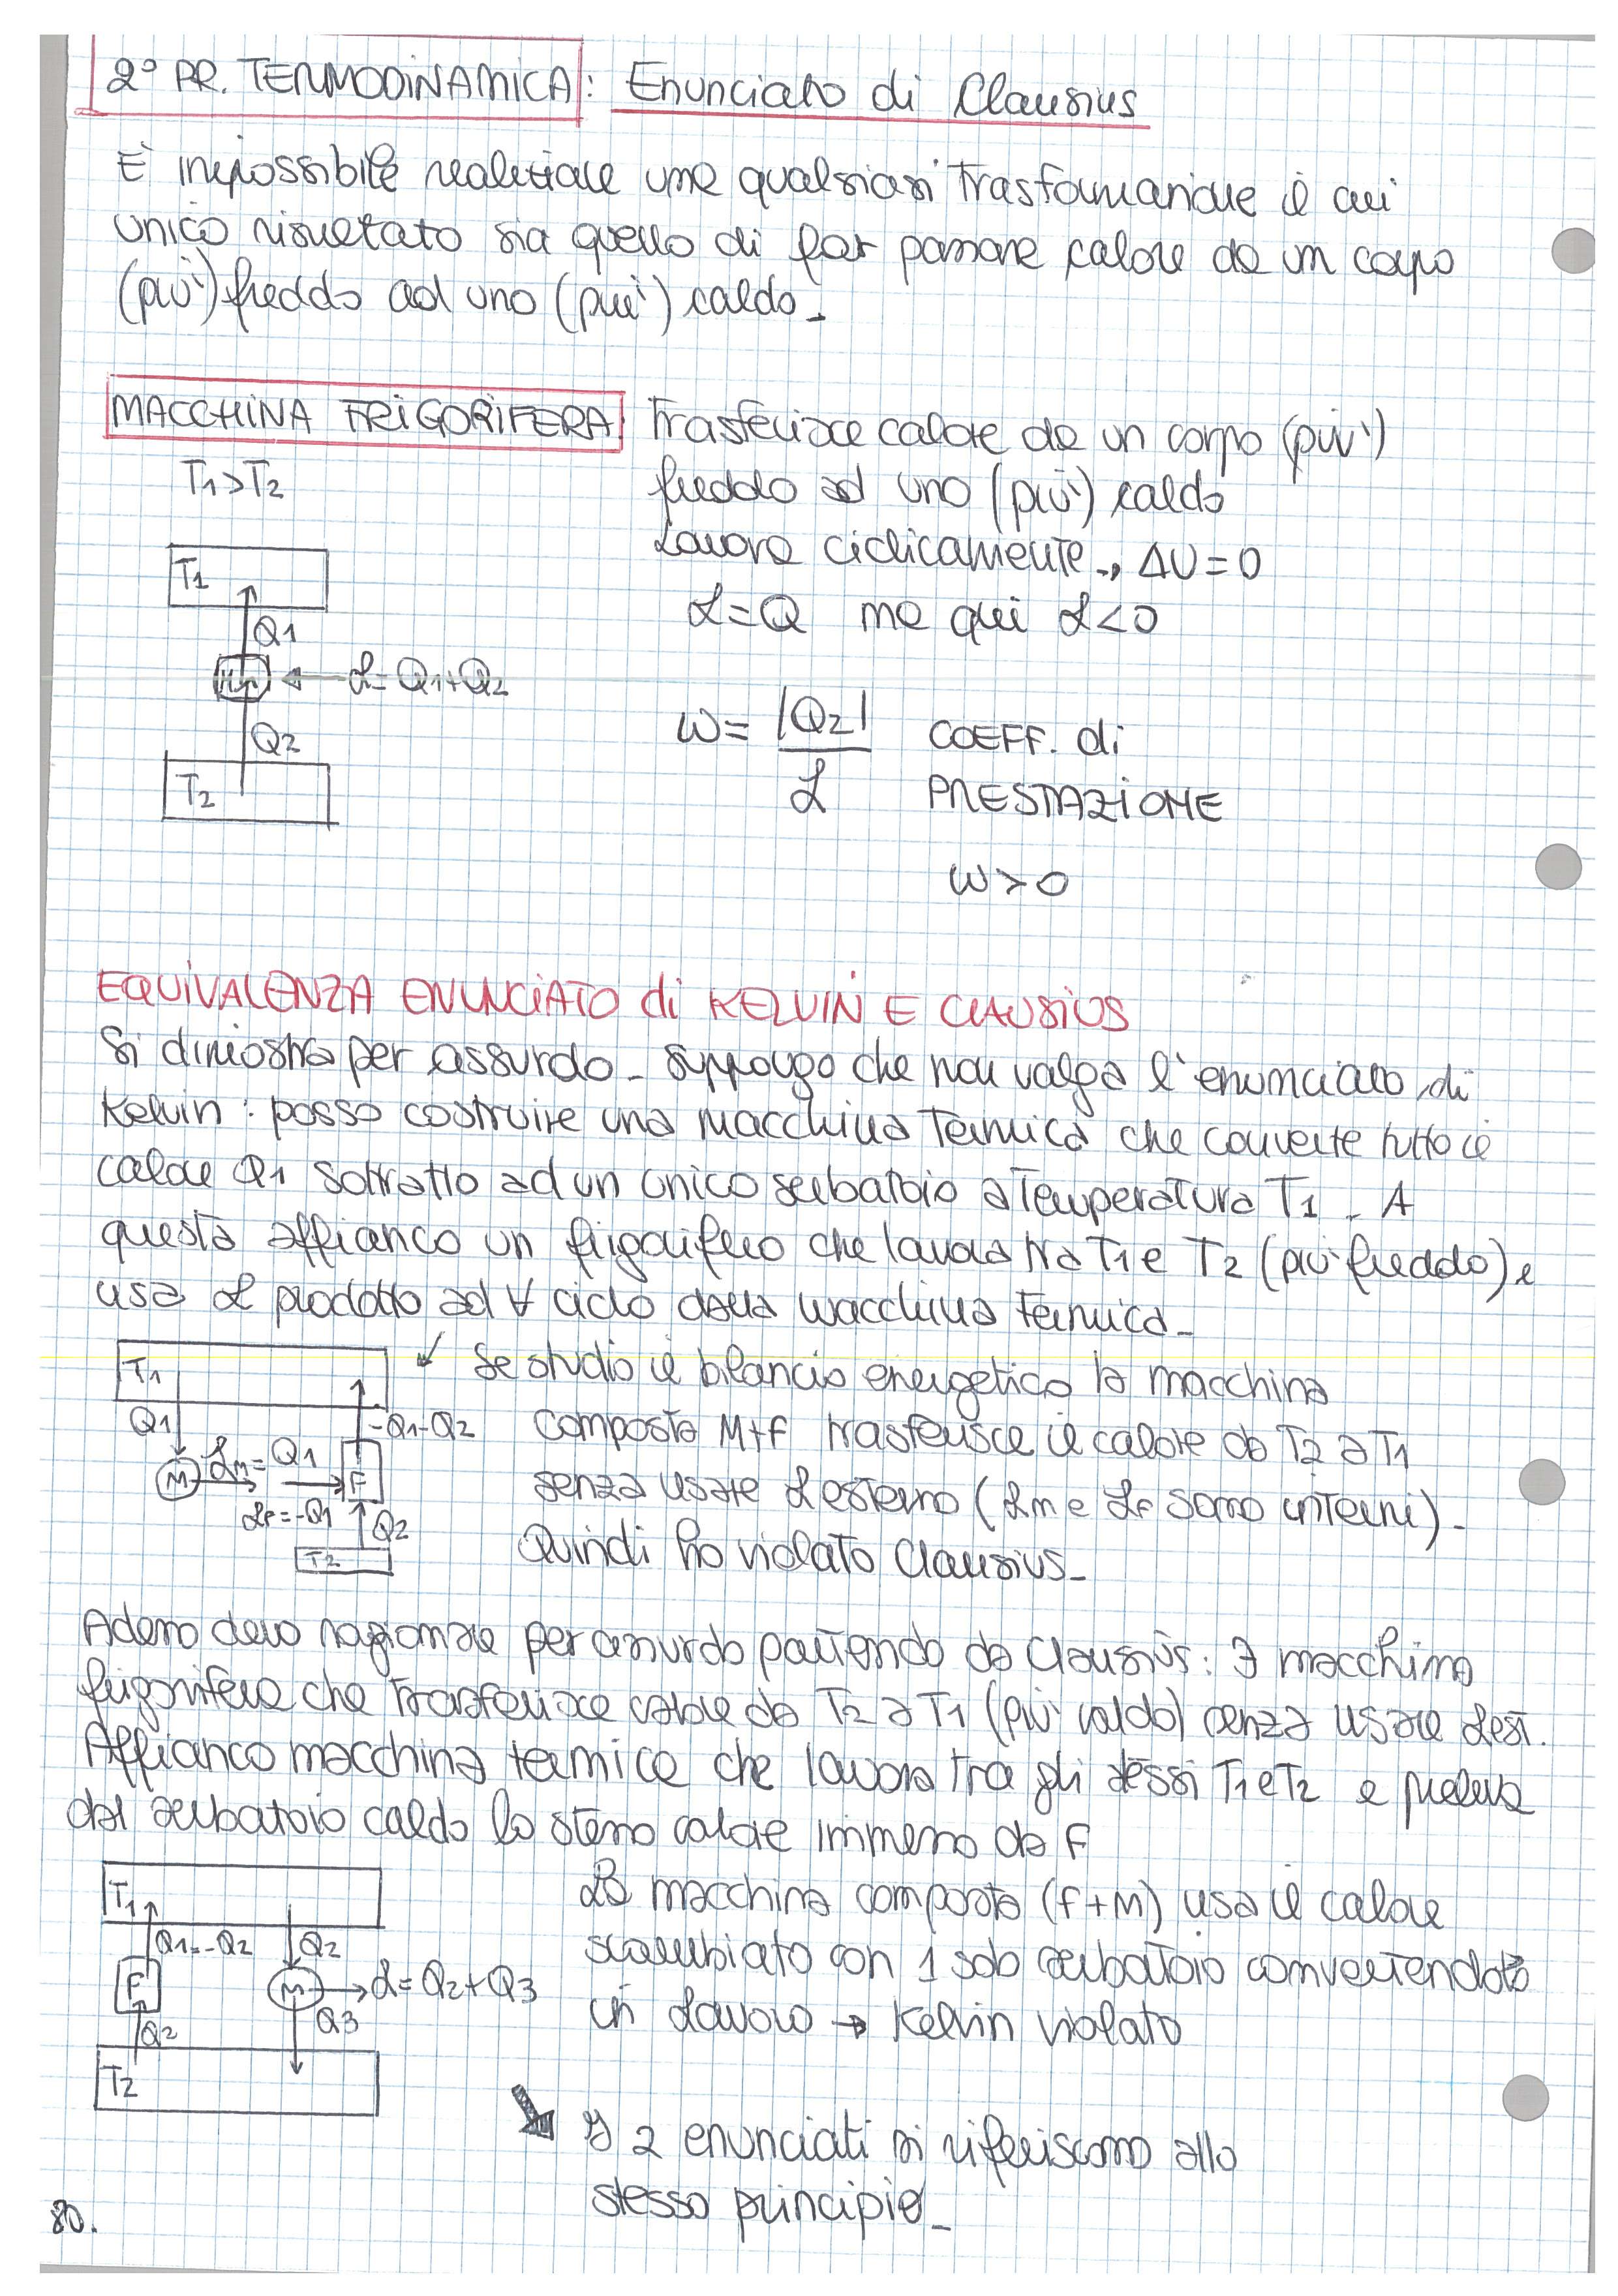 2° PR. TERMODINAMICA: Enunciato di Clausius
E' impossibile realizzare una qualsiasi trasformazione il cui
unico risultato sia quello di far passare calore da un corpo
(più) freddo ad uno (più) caldo_
MACCHINA FRIGORIFERA: Trasferisce calore da un corpo (più)
T1>T2
freddo ad uno (più) caldo
Lavora ciclicamente → ΔU=0
L=Q ma qui L<0
T1
Q1
L=Q1+Q2
Q2
T2
ω= |Q2| / L COEFF. di
PRESTAZIONE
ω>0
EQUIVALENZA ENUNCIATO di KELVIN E CLAUSIUS
Si dimostra per assurdo_ Suppongo che non valga l'enunciato di
Kelvin: posso costruire una macchina termica che converte tutto il
calore Q1 sottratto ad un unico serbatoio a Temperatura T1_ A
questa affianco un frigorifero che lavora tra T1 e T2 (più freddo) e
usa L prodotto ad ∀ ciclo dalla macchina termica_
T1
Q1
-Q1-Q2
M
LM=Q1
F
LF=-Q1
Q2
T2
Se studio il bilancio energetico la macchina
composta M+F trasferisce il calore da T2 a T1
senza usare L esterno (LM e LF sono interni)_
Quindi ho violato Clausius_
Adesso devo ragionare per assurdo partendo da Clausius: ∃ macchina
frigorifera che trasferisce calore da T2 a T1 (più caldo) senza usare Lest.
Affianco macchina termica che lavora tra gli stessi T1 e T2 e preleva
dal serbatoio caldo lo stesso calore immesso da F
T1
Q1=-Q2
Q2
F
M
L=Q2+Q3
Q2
Q3
T2
La macchina composta (F+M) usa il calore
scambiato con 1 solo serbatoio convertendolo
in Lavoro → Kelvin violato
I 2 enunciati si riferiscono allo
stesso principio_
80.